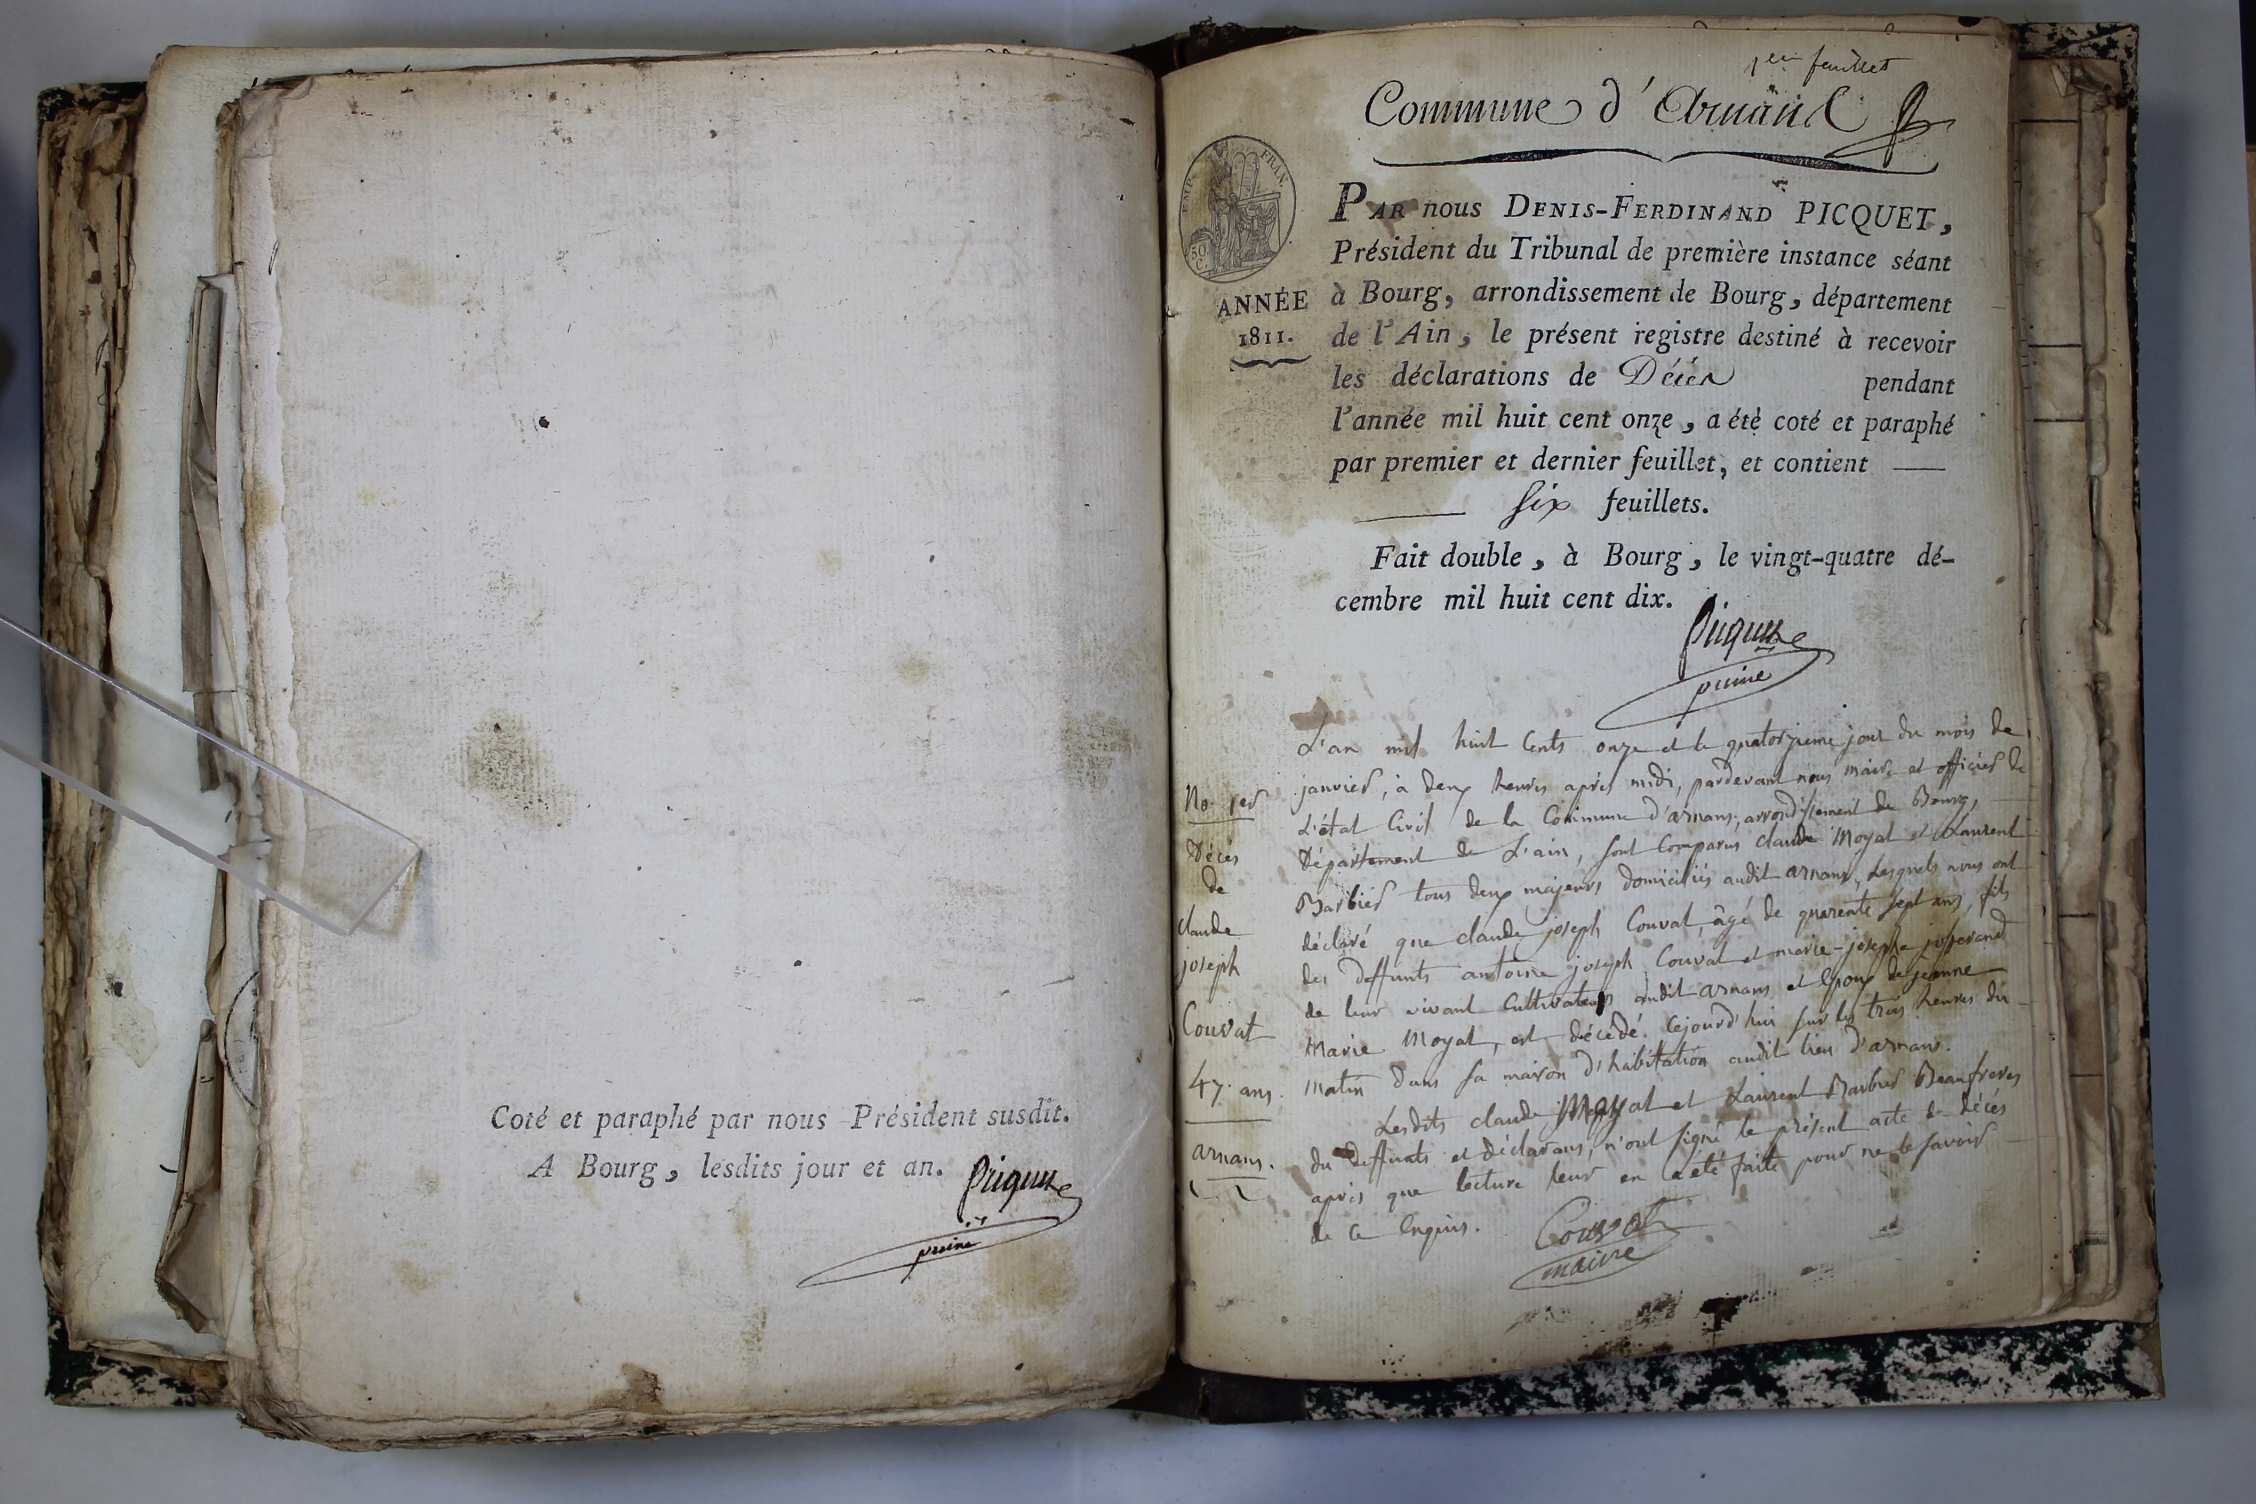 Coté et paraphé par nous Président susdit.
A Bourg, lesdits jour et an.
Picquet
1er feuillet
Commune d'Arnans
EMP. FRAN.
50 C.
ANNÉE
1811.
PAR nous DENIS-FERDINAND PICQUET,
Président du Tribunal de première instance séant
à Bourg, arrondissement de Bourg, département
de l'Ain, le présent registre destiné à recevoir
les déclarations de Décès pendant
l'année mil huit cent onze, a été coté et paraphé
par premier et dernier feuillet, et contient
six feuillets.
Fait double, à Bourg, le vingt-quatre dé-
cembre mil huit cent dix.
Picquet
No. 1er
Décès
de
claude
joseph
Couvat
47 ans.
arnans.
L'an mil huit Cents onze et le quatorzieme jour du mois de
janvier, à deux heures après midi, pardevant nous maire et officier de
L'état Civil de la Commune d'arnans, arrondissement de Bourg,
Département de L'ain, sont Comparus claude Moyat et Laurent
Barbier tous deux majeurs domiciliés audit arnans, Lesquels nous ont
déclaré que claude joseph Couvat, âgé de quarente sept ans, fils
des deffunts antoine joseph Couvat et marie-josephe josserand
de leur vivant Cultivateurs audit arnans et Epoux de jeanne
Marie Moyat, est décédé. Cejourd'hui sur les trois heures du
Matin dans sa maison d'habitation audit lieu d'arnans.
Lesdits claude Moyat et Laurent Barbier Beaufreres
du deffunts et Déclarans, n'ont signé le présent acte de décès
après que lecture leur en a été faite pour ne le savoir
de ce Enquis.
Couvat
maire